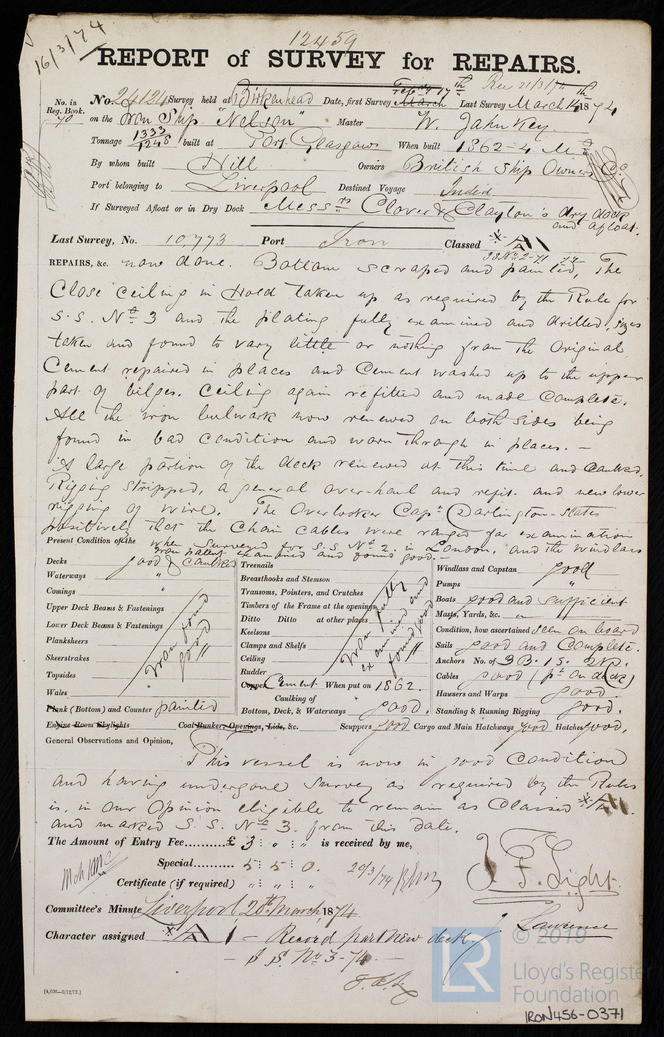 16/3/74
12459
REPORT of SURVEY for REPAIRS.
Rec 21/3/74
No. in Reg. Book. 70
No. 24124 Survey held at Birkenhead Date, first Survey Feby 17th March Last Survey March 14th 1874
on the Iron Ship "Nelson" Master W. Jahnkey
Tonnage 1333 1248 built at Port Glasgow When built 1862-4 Mo
By whom built Hill Owners British Ship Owners Co
Port belonging to Liverpool Destined Voyage India
If Surveyed Afloat or in Dry Dock Messrs Clover & Clayton's dry dock and afloat.
Last Survey, No. 10,773 Port Iron Classed A1
SS No 2-71
REPAIRS, &c. now done. Bottom scraped and painted, The
Close Ceiling in Hold taken up as required by the Rule for
S.S. No 3 and the plating fully examined and drilled, sizes
taken and found to vary little or nothing from the Original
Cement repaired in places and Cement washed up to the upper
part of bilges. Ceiling again refitted and made Complete.
All the iron bulwark now renewed on both sides being
found in bad condition and worn through in places. –
A large portion of the deck renewed at this time and Caulked.
Rigging stripped, a general over-haul and refit and new lower
rigging of wire. The Overlooker Capt Darlington States
positively that the Chain Cables were ranged for examination
when surveyed for S.S. No 2. in London, and the windlass
Present Condition of the
examined and found good.–
Decks good & caulked
Waterways "
Comings "
Upper Deck Beams & Fastenings
Lower Deck Beams & Fastenings
Planksheers
Sheerstrakes
Topsides
Wales
Iron found good
Plank (Bottom) and Counter painted
Engine Room Skylights
Treenails
Breasthooks and Stemson
Transoms, Pointers, and Crutches
Timbers of the Frame at the openings
Ditto Ditto at other places
Keelsons
Clamps and Shelfs
Ceiling
Rudder
Iron fully examined and found good
Copper Cement. When put on 1862.
Caulking of Bottom, Deck, & Waterways good.
Coal Bunker Openings, Lids, &c.
Windlass and Capstan good
Pumps "
Boats good and sufficient
Masts, Yards, &c. "
Condition, how ascertained seen on board
Sails good and Complete.
Anchors No. of 3B. 1S. 2K.
Cables good (pt on deck)
Hausers and Warps good
Standing & Running Rigging good.
Scuppers good Cargo and Main Hatchways good Hatches good.
General Observations and Opinion,
This vessel is now in good condition
and having undergone Survey as required by the Rules
is, in our Opinion eligible to remain as Classed A1
and marked S.S. No 3. from this date.
The Amount of Entry Fee......... £ 3 " " is received by me,
Special...... 5 5 0. 20/3/74
Certificate (if required) " " "
J. F. Light.
J. Lawrence
Committee's Minute Liverpool 20th March, 1874.
Character assigned A1 – Record part New deck.
– S S No 3-74. –
© 2019
LR
Lloyd's Register
Foundation
IRON456-0371